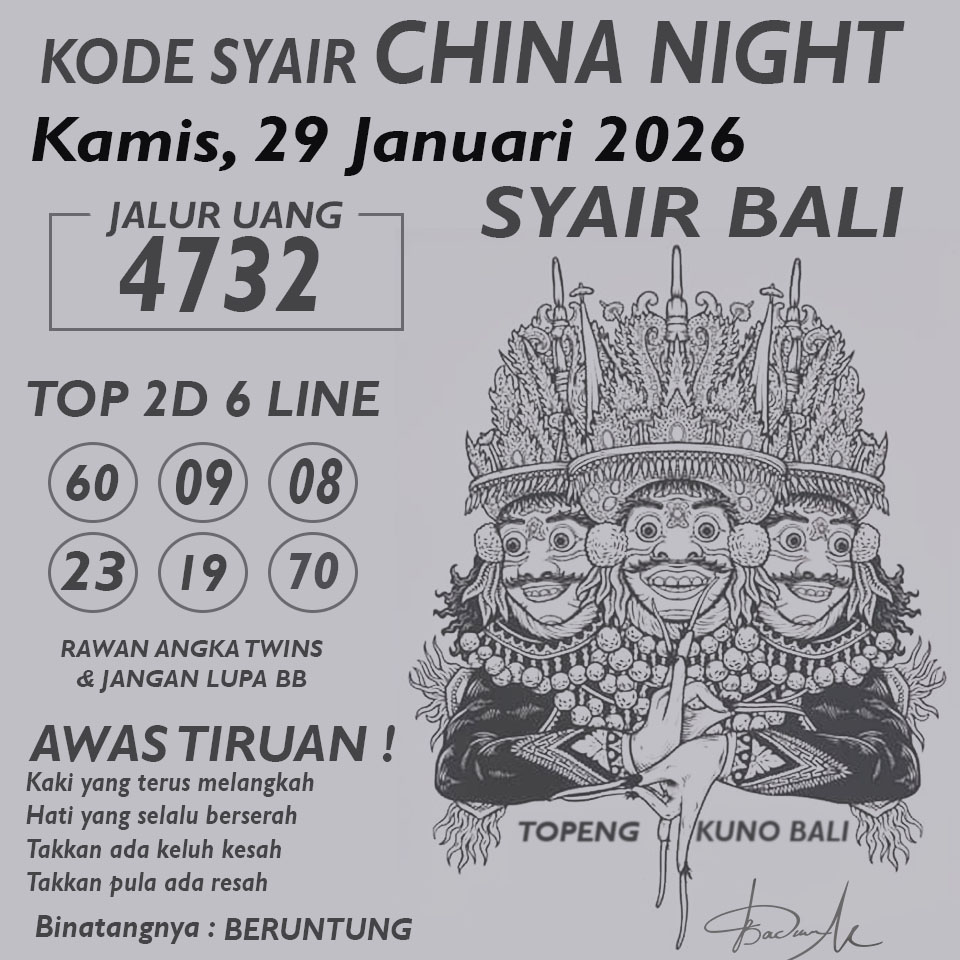 KODE SYAIR CHINA NIGHT
Kamis, 29 Januari 2026
SYAIR BALI
JALUR UANG
4732
TOP 2D 6 LINE
60 09 08
23 19 70
RAWAN ANGKA TWINS
& JANGAN LUPA BB
AWAS TIRUAN !
Kaki yang terus melangkah
Hati yang selalu berserah
Takkan ada keluh kesah
Takkan pula ada resah
Binatangnya : BERUNTUNG
TOPENG KUNO BALI